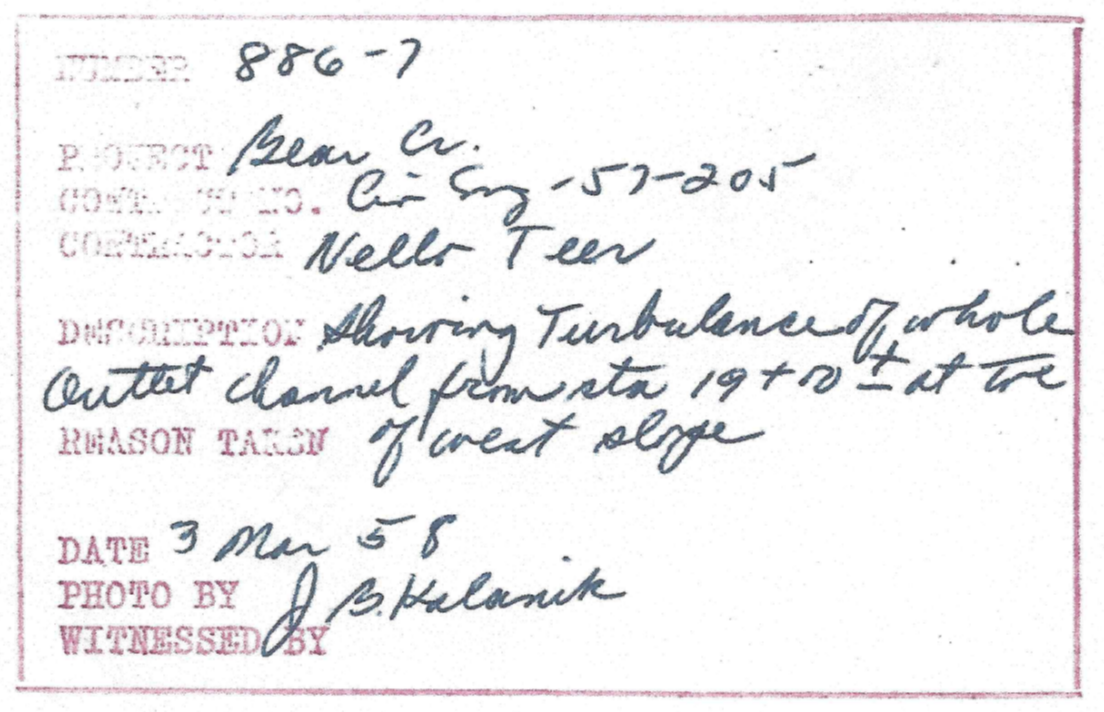 NUMBER 886-7
PROJECT Bear Cr.
CONTRACT NO. Civ Eng -57-205
CONTRACTOR Nello Teer
DESCRIPTION Showing Turbulance of whole
Outlet channel from sta 19+00 ± at toe
REASON TAKEN of west slope
DATE 3 Mar 58
PHOTO BY J B. Kalanik
WITNESSED BY